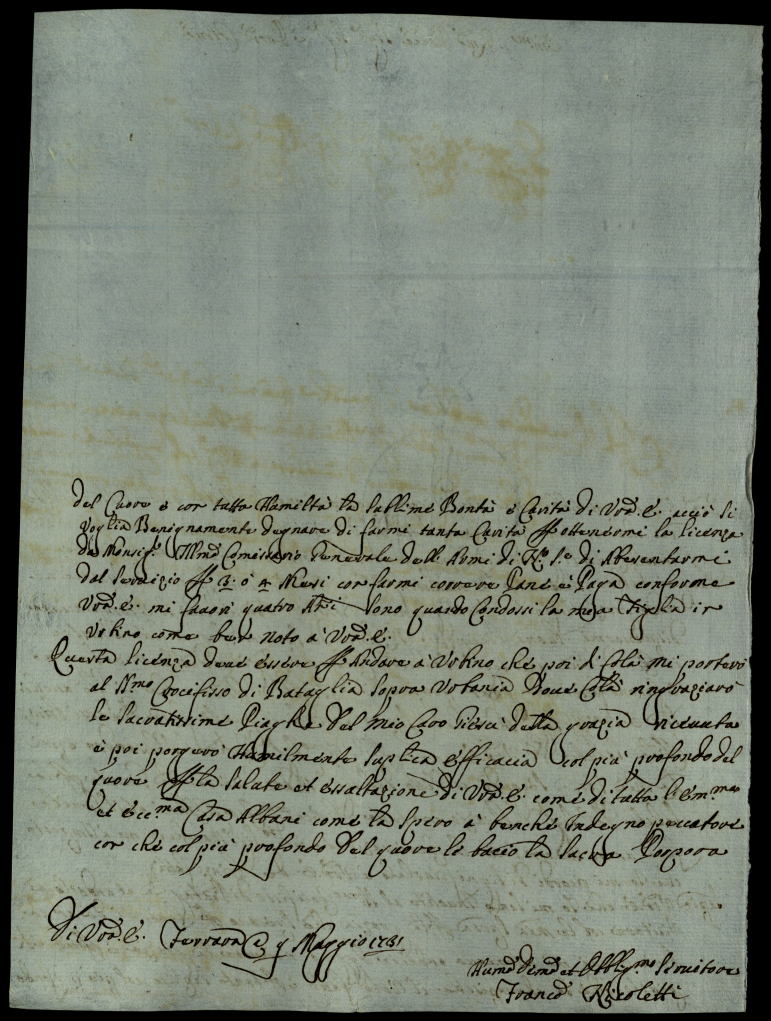 del Cuore è cor tutta Hamiltà la sublime Bontà è Carità di Vrã. E. acciò si
voglia Benignamente degnare di farmi tanta Carità p ottenermi la licenza
da Monsig.r Illmõ Comissario Generale dell Armi di di Absentarmi
dal servizio p 3. ò 4 Mesi cor farmi correre Pane è Paga conforme
Vrã. E. mi favorì quatro Ani sono quando Condossi la mia Figlia ir
Vrbino come ber noto à Vrã. E.
Questa licenza deve essere p Andare à Vrbino che poi di Colà mi porterò
al Crocifisso di Bataglia sopra Vrbania Doue Colà ringraziarò
le Sacratissime Piaghe del mio Caro Giesù della grazia riceuuta
è poi porgerò Hamilmente suplica èfficacia col più profondo del
quore p la salute et èssaltazione di Vrã. E. comè di tutta l Em.ma
et Ecc.ma Casa Albani come la spero à benche Indegno peccatore
cor che col più profondo del quore le baccio la sacra Porpora
Di Vrã. E. Ferrara Maggio 1731
Hum Deṽo et Obblg.mo Seruitore
Franc.o Nicoletti